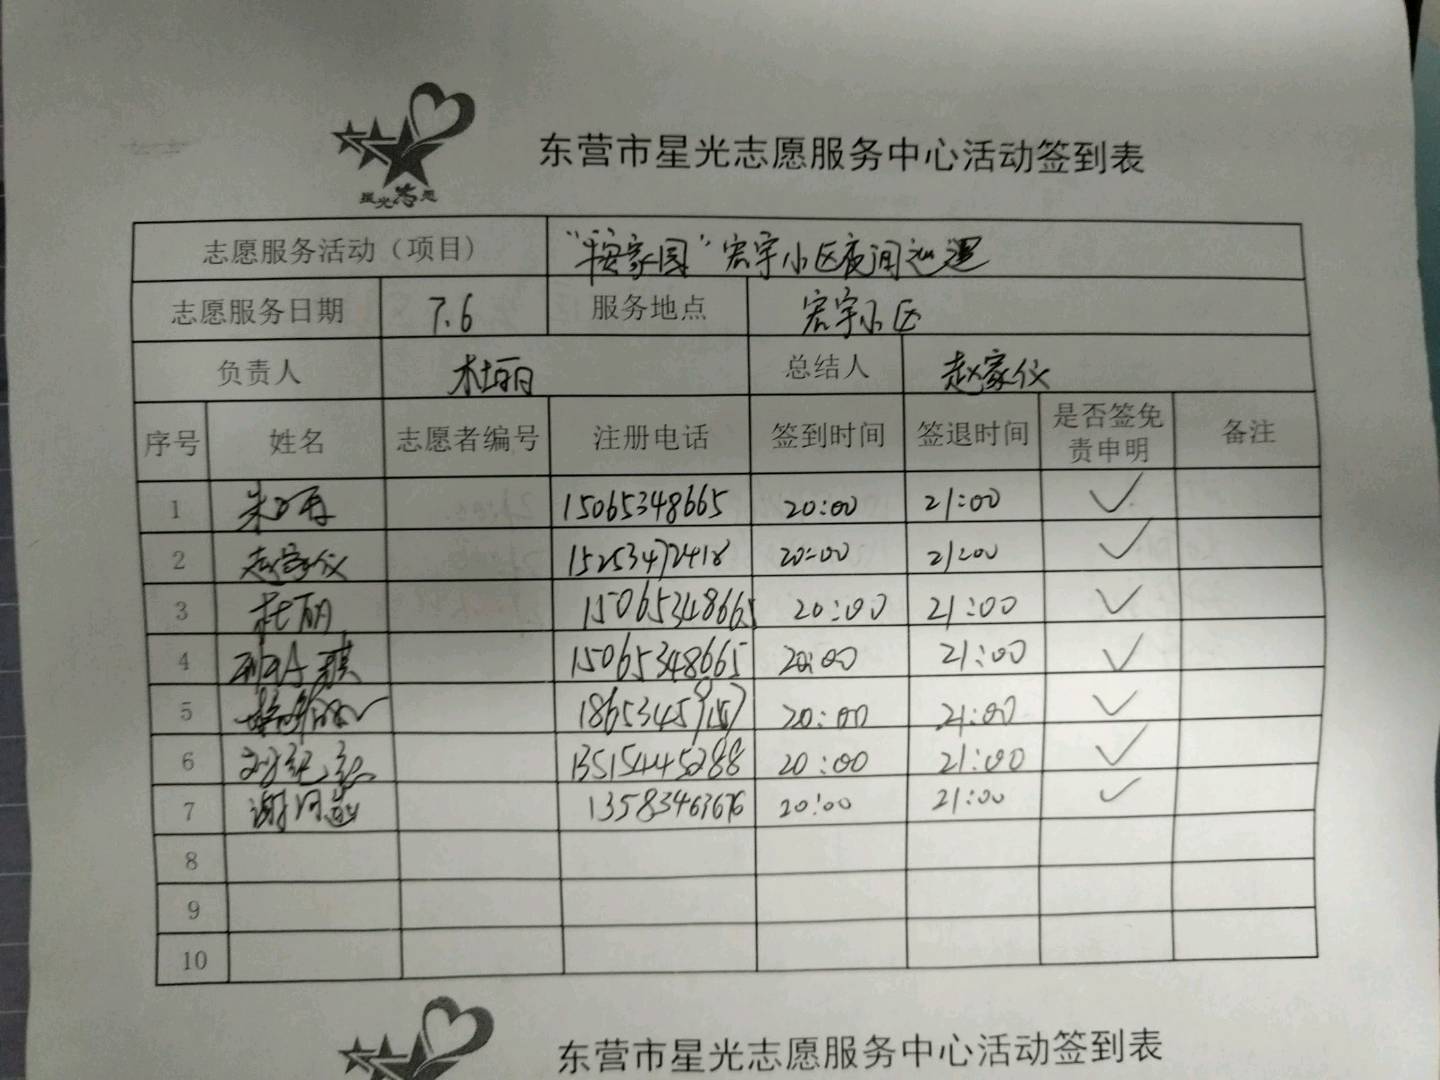 星光志愿
东营市星光志愿服务中心活动签到表
志愿服务活动（项目） 宏宇小区夜间巡逻
志愿服务日期 7.6 服务地点 宏宇小区
负责人 杜丽 总结人 赵家仪
序号 姓名 志愿者编号 注册电话 签到时间 签退时间 是否签免责申明 备注
1 15065348665 20:00 21:00 ✓
2 赵家仪 15253472418 20:00 21:00 ✓
3 杜丽 15065348665 20:00 21:00 ✓
4 15065348665 20:00 21:00 ✓
5 20:00 21:00 ✓
6 13515445288 20:00 21:00 ✓
7 13583463676 20:00 21:00 ✓
8
9
10
东营市星光志愿服务中心活动签到表